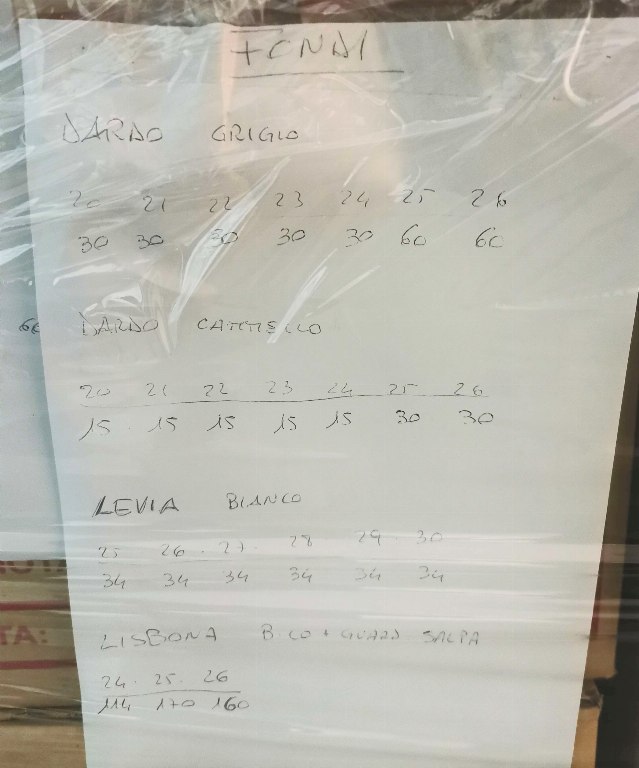 FONDI
DARDO GRIGIO
20 21 22 23 24 25 26
30 30 30 30 30 60 60
DARDO CAMMELLO
20 21 22 23 24 25 26
15 15 15 15 15 30 30
LEVIA BIANCO
25 26 27 28 29 30
34 34 34 34 34 34
LISBONA B.CO + GUARD. SALPA
24 25 26
114 170 160
TA: